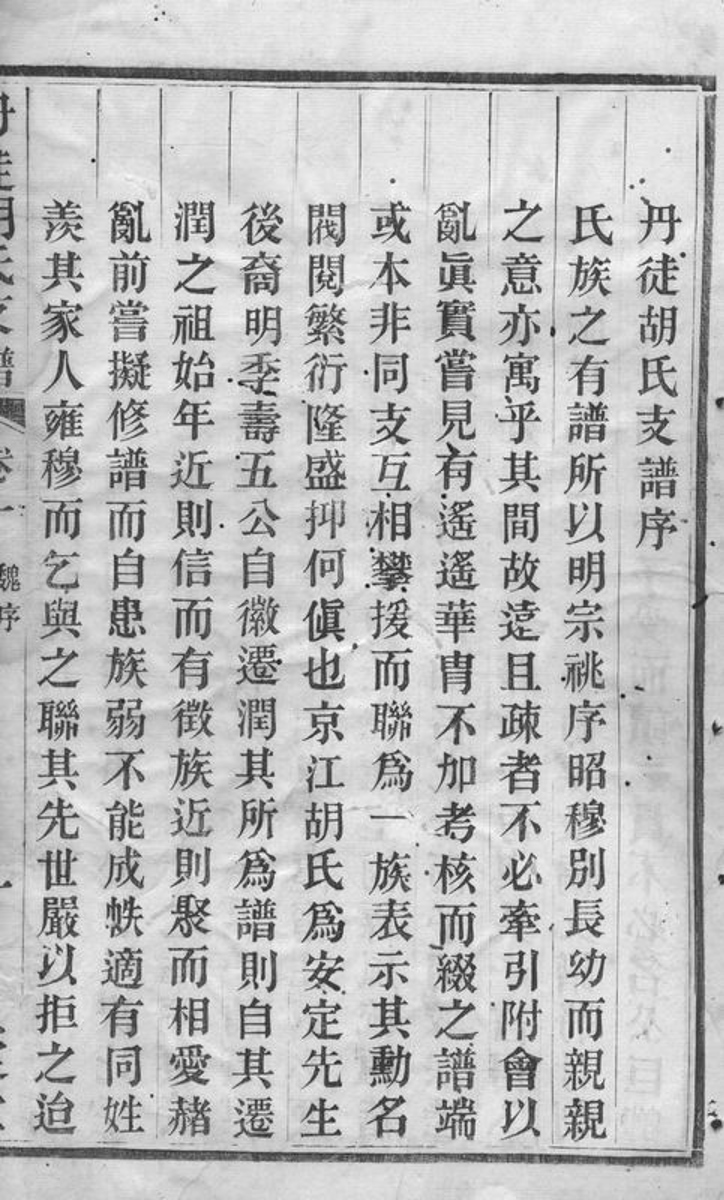 丹徒胡氏支譜序
氏族之有譜所以明宗祧序昭穆別長幼而親親
之意亦寓乎其間故遠且疎者不必牽引附會以
亂眞實嘗見有遙遙華胄不加考核而綴之譜端
或本非同支互相攀援而聯爲一族表示其勳名
閥閱繁衍隆盛抑何傎也京江胡氏爲安定先生
後裔明季壽五公自徽遷潤其所爲譜則自其遷
潤之祖始年近則信而有徵族近則聚而相愛赭
亂前嘗擬修譜而自患族弱不能成帙適有同姓
羨其家人雍穆而乞與之聯其先世嚴以拒之迨
丹徒胡氏支譜 卷一 魏序 一